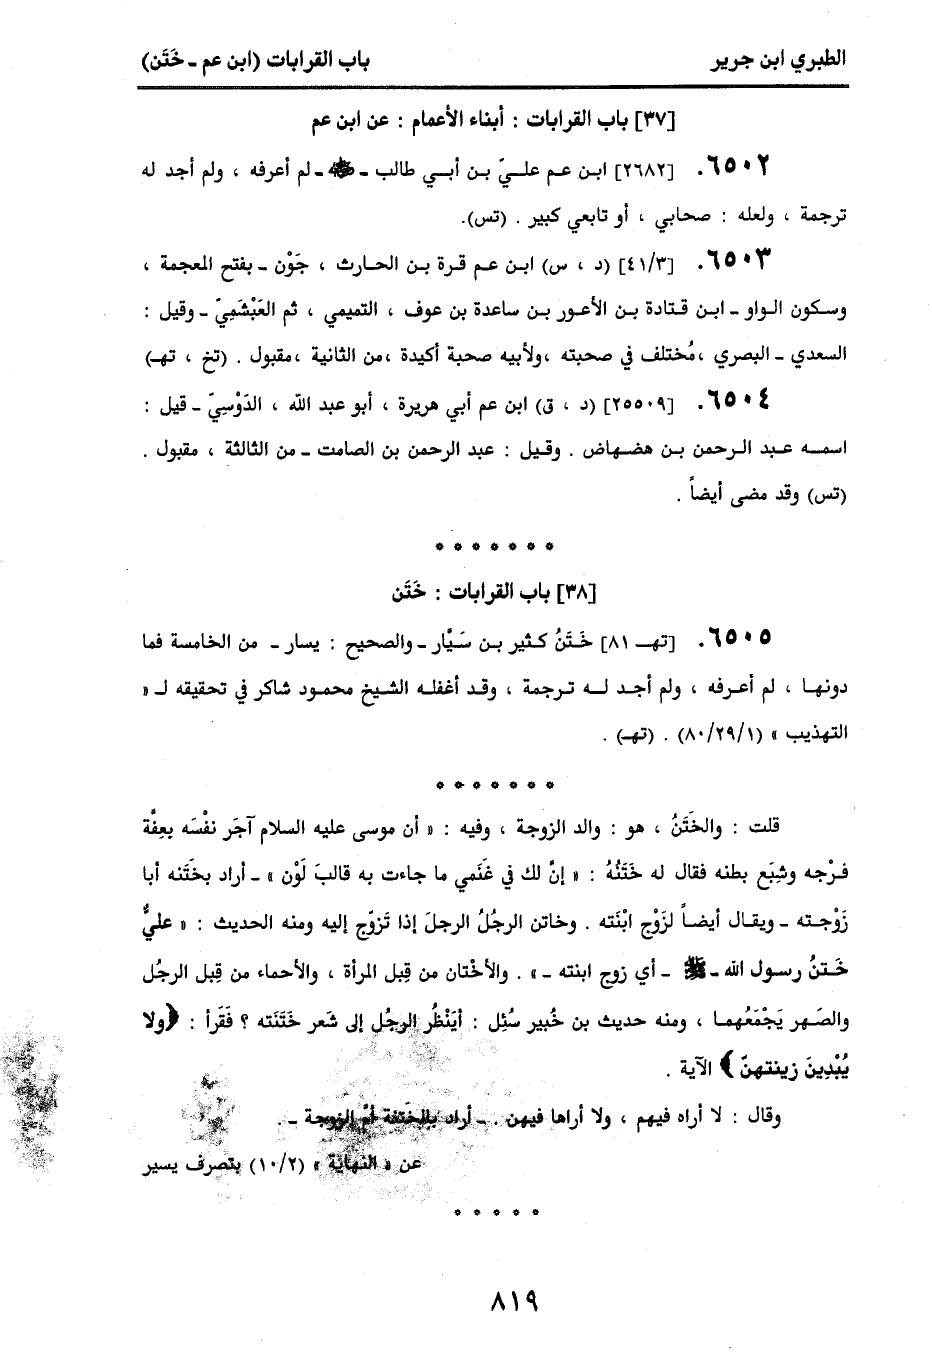 الطبري ابن جرير
باب القرابات (ابن عم ـ خَتَن)
[٣٧] باب القرابات : أبناء الأعمام : عن ابن عم
٦٥٠٢. [٢٦٨٢] ابن عم عليّ بن أبي طالب ـ ﷺ ـ لم أعرفه ، ولم أجد له
ترجمة ، ولعله : صحابي ، أو تابعي كبير . (تس).
٦٥٠٣. [٤١/٣] (د ، س) ابن عم قرة بن الحارث ، جَوْن ـ بفتح المعجمة ،
وسكون الواو ـ ابن قتادة بن الأعور بن ساعدة بن عوف ، التميمي ، ثم العَبْشَمِيّ ـ وقيل :
السعدي ـ البصري ،مُختلف في صحبته ،ولأبيه صحبة أكيدة ،من الثانية ،مقبول . (تخ ، تهـ)
٦٥٠٤. [٢٥٥٠٩] (د ، ق) ابن عم أبي هريرة ، أبو عبد الله ، الدَوْسِيّ ـ قيل :
اسمه عبد الرحمن بن هضهاض . وقيل : عبد الرحمن بن الصامت ـ من الثالثة ، مقبول .
(تس) وقد مضى أيضاً .
* * * * * * *
[٣٨] باب القرابات : خَتَن
٦٥٠٥. [تهـ ٨١] خَتَنُ كثير بن سَيَّار ـ والصحيح : يسار ـ من الخامسة فما
دونها ، لم أعرفه ، ولم أجد له ترجمة ، وقد أغفله الشيخ محمود شاكر في تحقيقه لـ «
التهذيب » (٨٠/٢٩/١) . (تهـ) .
* * * * * * *
قلت : والخَتَنُ ، هو : والد الزوجة ، وفيه : « أن موسى عليه السلام آجَر نفْسَه بعِفَّة
فرْجه وشِبَع بطنه فقال له خَتَنُهُ : « إنَّ لك في غَنَمي ما جاءت به قالبَ لَوْن » ـ أراد بختَنه أبا
زَوْجته ـ ويقال أيضاً لزَوْج ابْنَته . وخاتن الرجُلُ الرجلَ إذا تَزوّج إليه ومنه الحديث : « عليٌّ
خَتنُ رسول الله ـ ﷺ ـ أي زوج ابنته ـ» . والأخْتان من قِبل المرأة ، والأحماء من قِبل الرجُل
والصّهر يَجْمَعُهما ، ومنه حديث بن جُبير سُئِل : أيَنْظُر الرجُل إلى شَعر خَتَنَته ؟ فَقَرأ : ﴿ولا
يُبْدِينَ زينتهنّ﴾ الآية .
وقال : لا أراه فيهم ، ولا أراها فيهن . ـ أراد بالخَتنة أمَّ الزوجة ـ .
عن « النهاية » (١٠/٢) بتصرف يسير
* * * * *
٨١٩